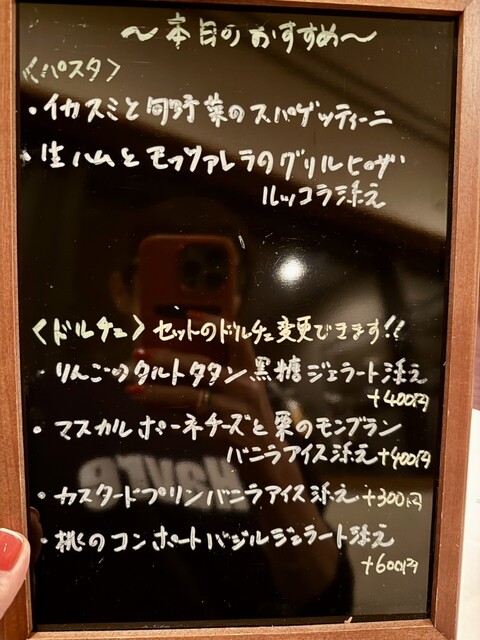 〜本日のおすすめ〜
〈パスタ〉
・イカスミと旬野菜のスパゲッティーニ
・生ハムとモッツァレラのグリルピザ
ルッコラ添え
〈ドルチェ〉セットのドルチェ変更できます!!
・りんごのタルトタタン 黒糖ジェラート添え
+400円
・マスカルポーネチーズと栗のモンブラン
バニラアイス添え+400円
・カスタードプリンバニラアイス添え+300円
・桃のコンポートバジルジェラート添え
+600円